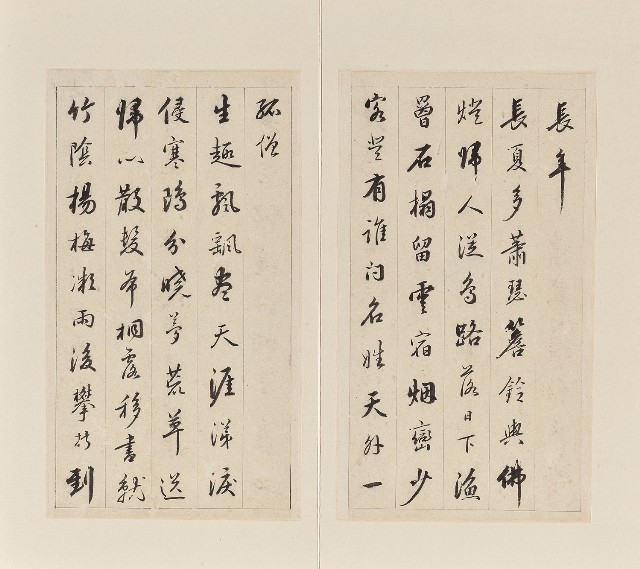 長年
長夏多蕭瑟簷鈴與佛
燈歸人從鳥路落日下漁
罾石榻留雲宿烟巒少
客登有誰問名姓天外一
孤僧
生趣飄飄盡天涯涕淚
侵寒鴉分曉夢荒草送
歸心散髮希桐露移書就
竹陰楊梅雨後攀折到